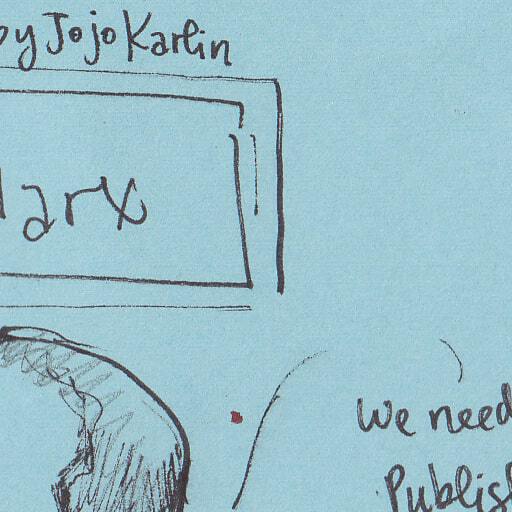 by Jojo Karlin
arx
We need
Publish